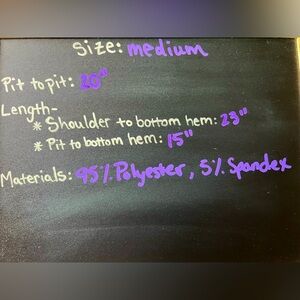 Size: medium
Pit to pit: 20"
Length-
* Shoulder to bottom hem: 23"
* Pit to bottom hem: 15"
Materials: 95% Polyester, 5% Spandex